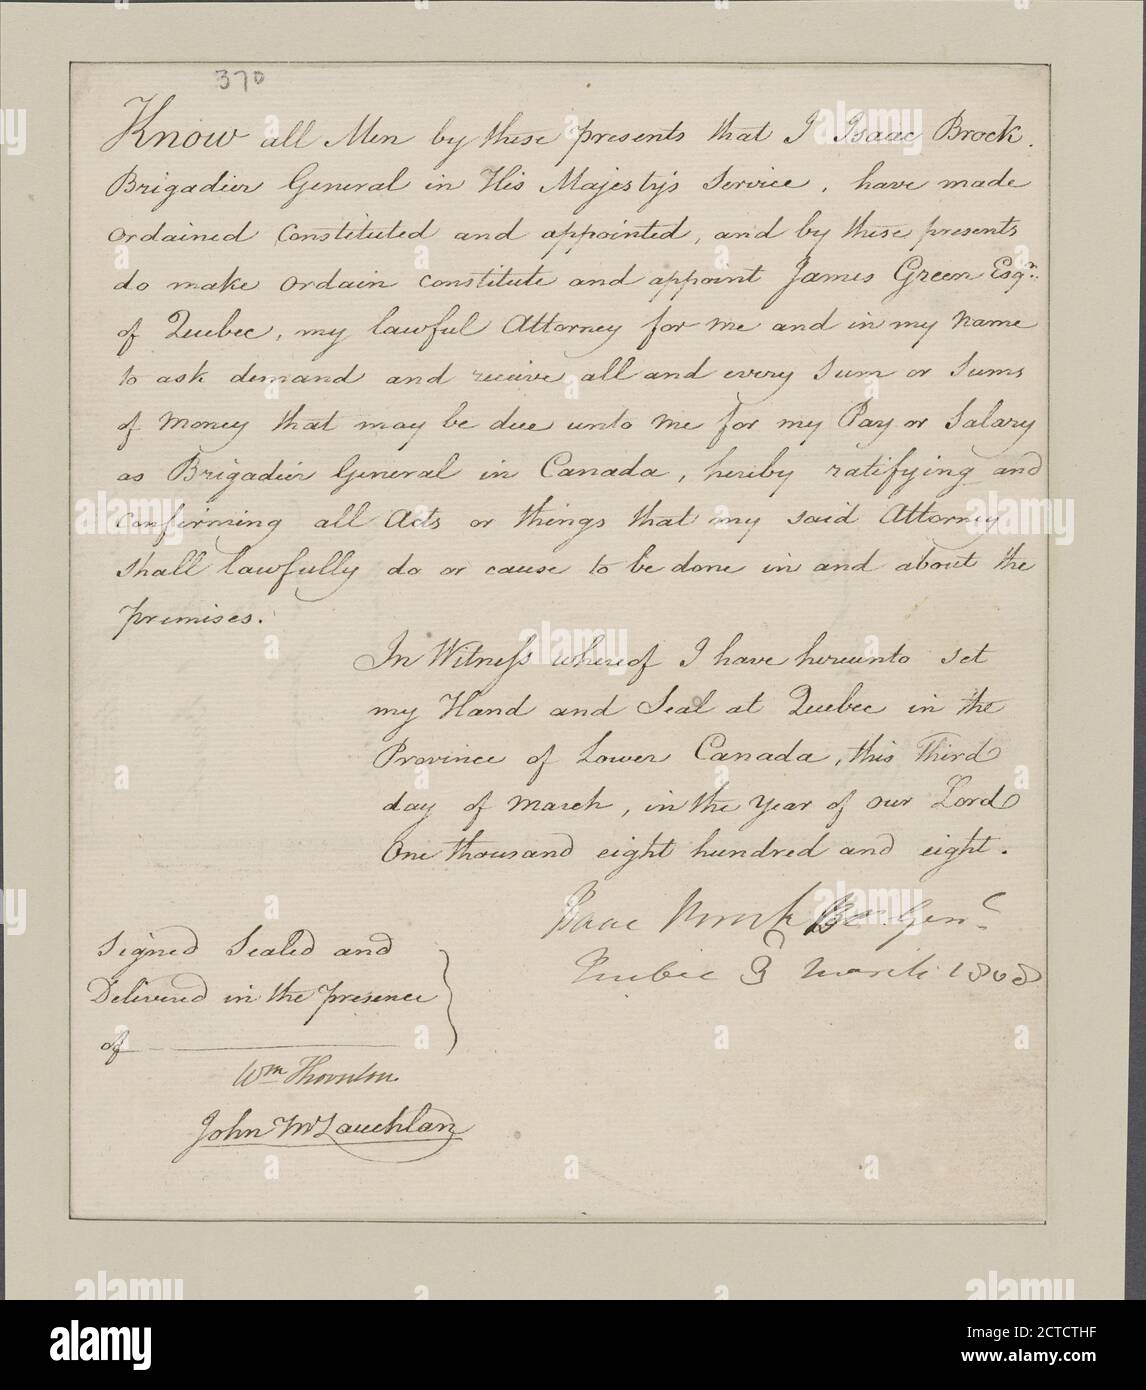 370
Know all Men by these presents that I Isaac Brock.
Brigadier General in His Majesty's Service, have made
ordained Constituted and appointed, and by these presents
do make ordain constitute and appoint James Green Esqr.
of Quebec, my lawful Attorney for me and in my name
to ask demand and receive all and every Sum or Sums
of Money that may be due unto me for my Pay or Salary
as Brigadier General in Canada, hereby ratifying and
confirming all Acts or things that my said Attorney
shall lawfully do or cause to be done in and about the
premises.
In Witness whereof I have hereunto set
my Hand and Seal at Quebec in the
Province of Lower Canada, this Third
day of March, in the year of our Lord
One thousand eight hundred and eight.
Isaac Brock Genl
Quebec 3 March 1808
Signed Sealed and
Delivered in the presence
of
Wm Thornton
John McLauchlan
alamy
Image ID: 2CTCTHF
www.alamy.com